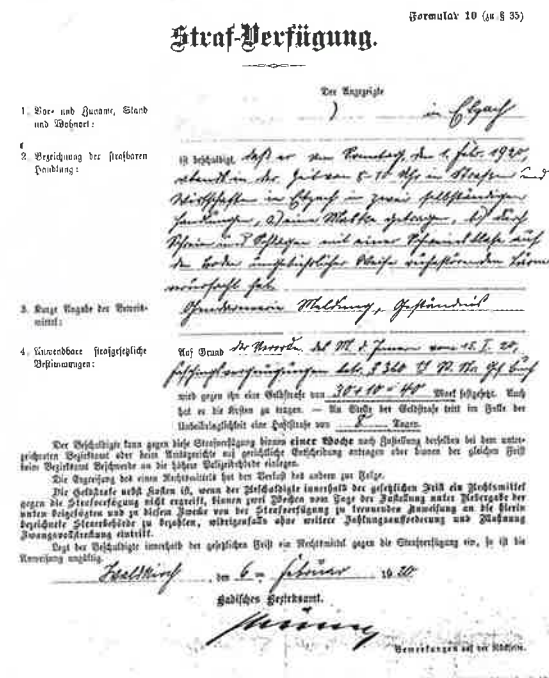 Formular 10 (zu § 35)
Straf-Verfügung.
Der Angezeigte
1. Vor- und Zuname, Stand
und Wohnort:
in Elzach
2. Bezeichnung der strafbaren
Handlung:
ist beschuldigt, daß er am Sonntag, den 1. Febr. 1920,
abends in der Zeit von 8-10 Uhr in Straßen und
Wirtschaften in Elzach in zwei selbständigen
Handlungen, a) eine Maske getragen, b) durch
Schreien und Schlagen mit einer Schweinsblase auf
den Boden ungebührlicher Weise ruhestörenden Lärm
verursacht hat.
3. Kurze Angabe der Beweis-
mittel:
Gendarmerie Meldung, Geständnis
4. Anwendbare strafgesetzliche
Bestimmungen:
Auf Grund der Verordn. des M. d. Innern vom 15. I. 20,
Faschingsvergnügungen betr. § 360 Str. Ges. Buch
wird gegen ihn eine Geldstrafe von 30+10=40 Mark festgesetzt. Auch
hat er die Kosten zu tragen. — An Stelle der Geldstrafe tritt im Falle der
Unbeibringlichkeit eine Haftstrafe von 8 Tagen.
Der Beschuldigte kann gegen diese Strafverfügung binnen einer Woche nach Zustellung derselben bei dem unter-
zeichneten Bezirksamt oder beim Amtsgerichte auf gerichtliche Entscheidung antragen oder binnen der gleichen Frist
beim Bezirksamt Beschwerde an die höhere Polizeibehörde einlegen.
Die Ergreifung des einen Rechtsmittels hat den Verlust des andern zur Folge.
Die Geldstrafe nebst Kosten ist, wenn der Beschuldigte innerhalb der gesetzlichen Frist ein Rechtsmittel
gegen die Strafverfügung nicht ergreift, binnen zwei Wochen vom Tage der Zustellung unter Uebergabe der
unten beigefügten und zu diesem Zwecke von der Strafverfügung zu trennenden Anweisung an die hierin
bezeichnete Steuerbehörde zu bezahlen, widrigenfalls ohne weitere Zahlungsaufforderung und Mahnung
Zwangsvollstreckung eintritt.
Legt der Beschuldigte innerhalb der gesetzlichen Frist ein Rechtsmittel gegen die Strafverfügung ein, so ist die
Anweisung ungültig.
Waldkirch, den 6. Februar 1920
Badisches Bezirksamt.
Bemerkungen auf der Rückseite.